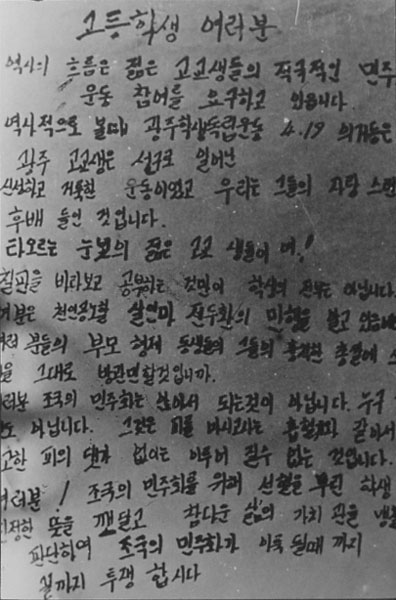 고등학생 여러분
역사의 흐름은 젊은 고교생들의 적극적인 민주
운동 참여를 요구하고 있읍니다.
역사적으로 볼때 광주학생독립운동 4.19 의거등은
광주 고교생은 선두로 일어난
신성하고 거룩한 운동이였고 우리는 그들의 자랑 스런
후배 들인 것입니다.
타오르는 눈빛의 젊은 고교 생들이 여!
칠판을 바라보고 공부하는 것만이 학생의 전부는 아닙니다.
러분은 천인공노할 살인마 전두환의 만행을 보고 있읍니
러 분들의 부모 형제 동생들이 그들의 총칼에
을 그대로 방관만할것입니까.
러분 조국의 민주화는 앉아서 되는것이 아닙니다. 누구
도 아닙니다. 그것은 피를 마시고사는 흡혈귀와 같아서
고한 피의 댓가 없이는 이루어 질수 없는 것입니다.
여러분! 조국의 민주화를 위해 선혈을 뿌린 학생
진정한 뜻을 깨달고 참다운 삶의 가치 관을 냉
판단하여 조국의 민주화가 이룩 될때 까지
끝까지 투쟁 합시다